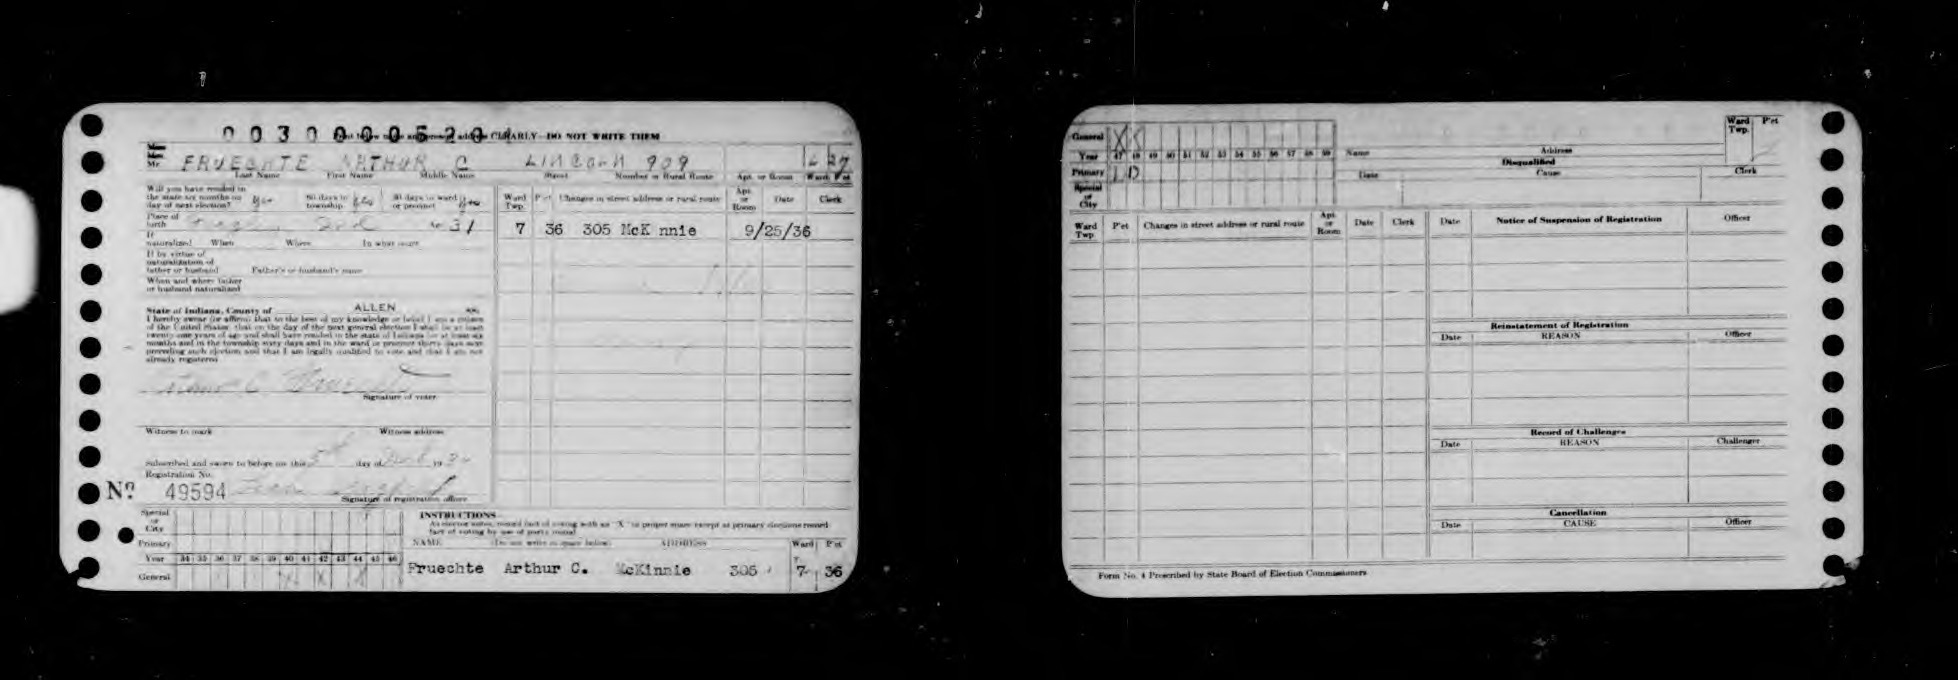 0030000520
CLEARLY—DO NOT WRITE THEM
Mr. FRUECHTE ARTHUR C LINCOLN 909 27
Last Name First Name Middle Name Street Number or Rural Route Apt. or Room Ward P'ct
Will you have resided in
the state six months on
day of next election? yes
60 days in
township yes
30 days in ward
or precinct yes
Place of
birth Ind 31
If
naturalized When Where In what court
If by virtue of
naturalization of
father or husband Father's or husband's name
When and where father
or husband naturalized
State of Indiana, County of ALLEN ss:
I hereby swear (or affirm) that to the best of my knowledge or belief I am a citizen
of the United States, that on the day of the next general election I shall be at least
twenty-one years of age and shall have resided in the state of Indiana for at least six
months and in the township sixty days and in the ward or precinct thirty days next
preceding such election and that I am legally qualified to vote and that I am not
already registered
Signature of voter
Witness to mark Witness address
Subscribed and sworn to before me this 5 day of 19
Registration No.
No 49594
Signature of registration officer
Ward
Twp. P'ct Changes in street address or rural route Apt.
or
Room Date Clerk
7 36 305 McK nnie 9/25/36
Special
or
City
Primary
Year 34 35 36 37 38 39 40 41 42 43 44 45 46
General X X X
INSTRUCTIONS
As elector votes, record fact of voting with an "X" in proper space except at primary elections record
fact of voting by use of party initial
NAME (Do not write in space below) ADDRESS Ward P'ct
Fruechte Arthur C. McKinnie 305 7 36
General X X
Year 47 48 49 50 51 52 53 54 55 56 57 58 59
Primary D
Special
or
City
Name Address Ward
Twp. P'ct
Disqualified
Date Cause Clerk
Ward
Twp. P'ct Changes in street address or rural route Apt.
or
Room Date Clerk
Date Notice of Suspension of Registration Officer
Reinstatement of Registration
Date REASON Officer
Record of Challenges
Date REASON Challenger
Cancellation
Date CAUSE Officer
Form No. 4 Prescribed by State Board of Election Commissioners